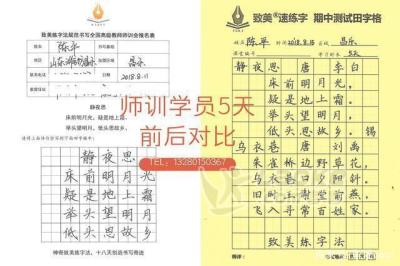 致美练字法规范书写全国高级教师师训会报名表
陈平
山东潍坊昌乐
2018.8.11
静夜思
床前明月光，疑是地上霜。
举头望明月，低头思故乡。
静夜思
床前明月光
疑是地上霜
举头望明月
低头思故乡
神奇致美练字法，十八天创造书写奇迹
师训学员5天
前后对比
TEL：13280150367
致美®速练字 期中测试田字格
陈平
2018.8.15
昌乐
5天
静夜思 唐 李白
床前明月光，
疑是地上霜。
举头望明月，
低头思故乡。 锡
乌衣巷 唐 刘禹
朱雀桥边野草花，
乌衣巷口夕阳斜。
旧时王谢堂前燕，
飞入寻常百姓家。
致美练字法